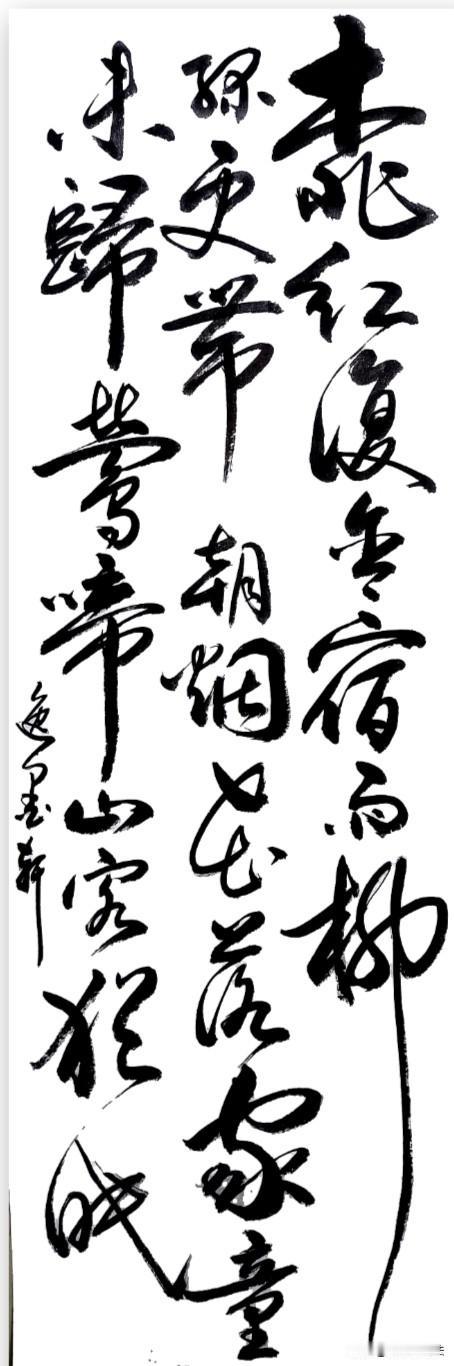 桃红復含宿雨柳
绿更带朝烟花落家童
未歸莺啼山客猶眠
逸墨轩